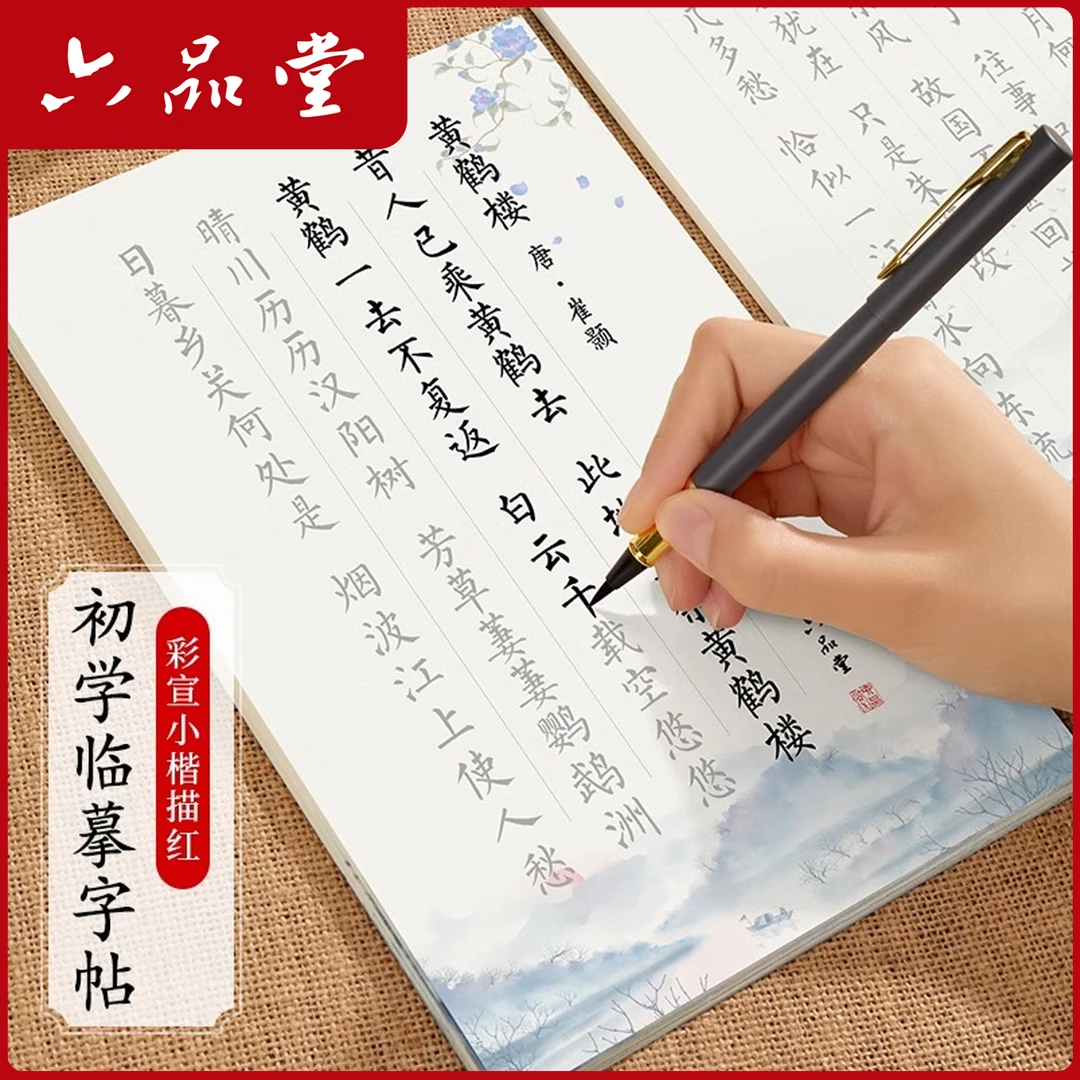 六品堂
黄鹤楼
唐·崔颢
昔人已乘黄鹤去 此地
黄鹤楼
黄鹤一去不复返 白云千载空悠悠
晴川历历汉阳树 芳草萋萋鹦鹉洲
日暮乡关何处是 烟波江上使人愁
六品堂
往事
故国不
回
只是朱
改
恰似一江
水向东流
几多愁
犹在
东风
月何
初学临摹字帖
彩宣小楷描红